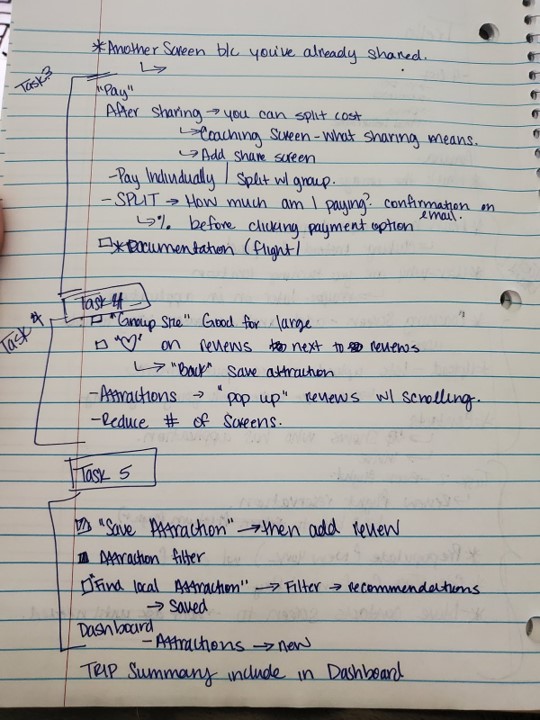 *Another Screen b/c you've already shared.
↳
Task 3
"Pay"
After sharing → you can split cost
↳ Coaching Screen - what sharing means.
↳ Add share screen
- Pay Individually / Split w/ group.
- SPLIT → How much am I paying? confirmation on email.
↳ % before clicking payment option
☐ * Documentation (flight/
Task 4
Task 4
☐ "Group Size" Good for large
☐ "♡" on reviews next to reviews
↳ "Back" save attraction
- Attractions → "pop up" reviews w/ scrolling.
- Reduce # of Screens.
Task 5
☑ "Save Attraction" → then add review
■ Attraction filter
☐ "Find local Attraction" → Filter → recommendations
→ saved
Dashboard
- Attractions → new
TRIP Summary include in Dashboard